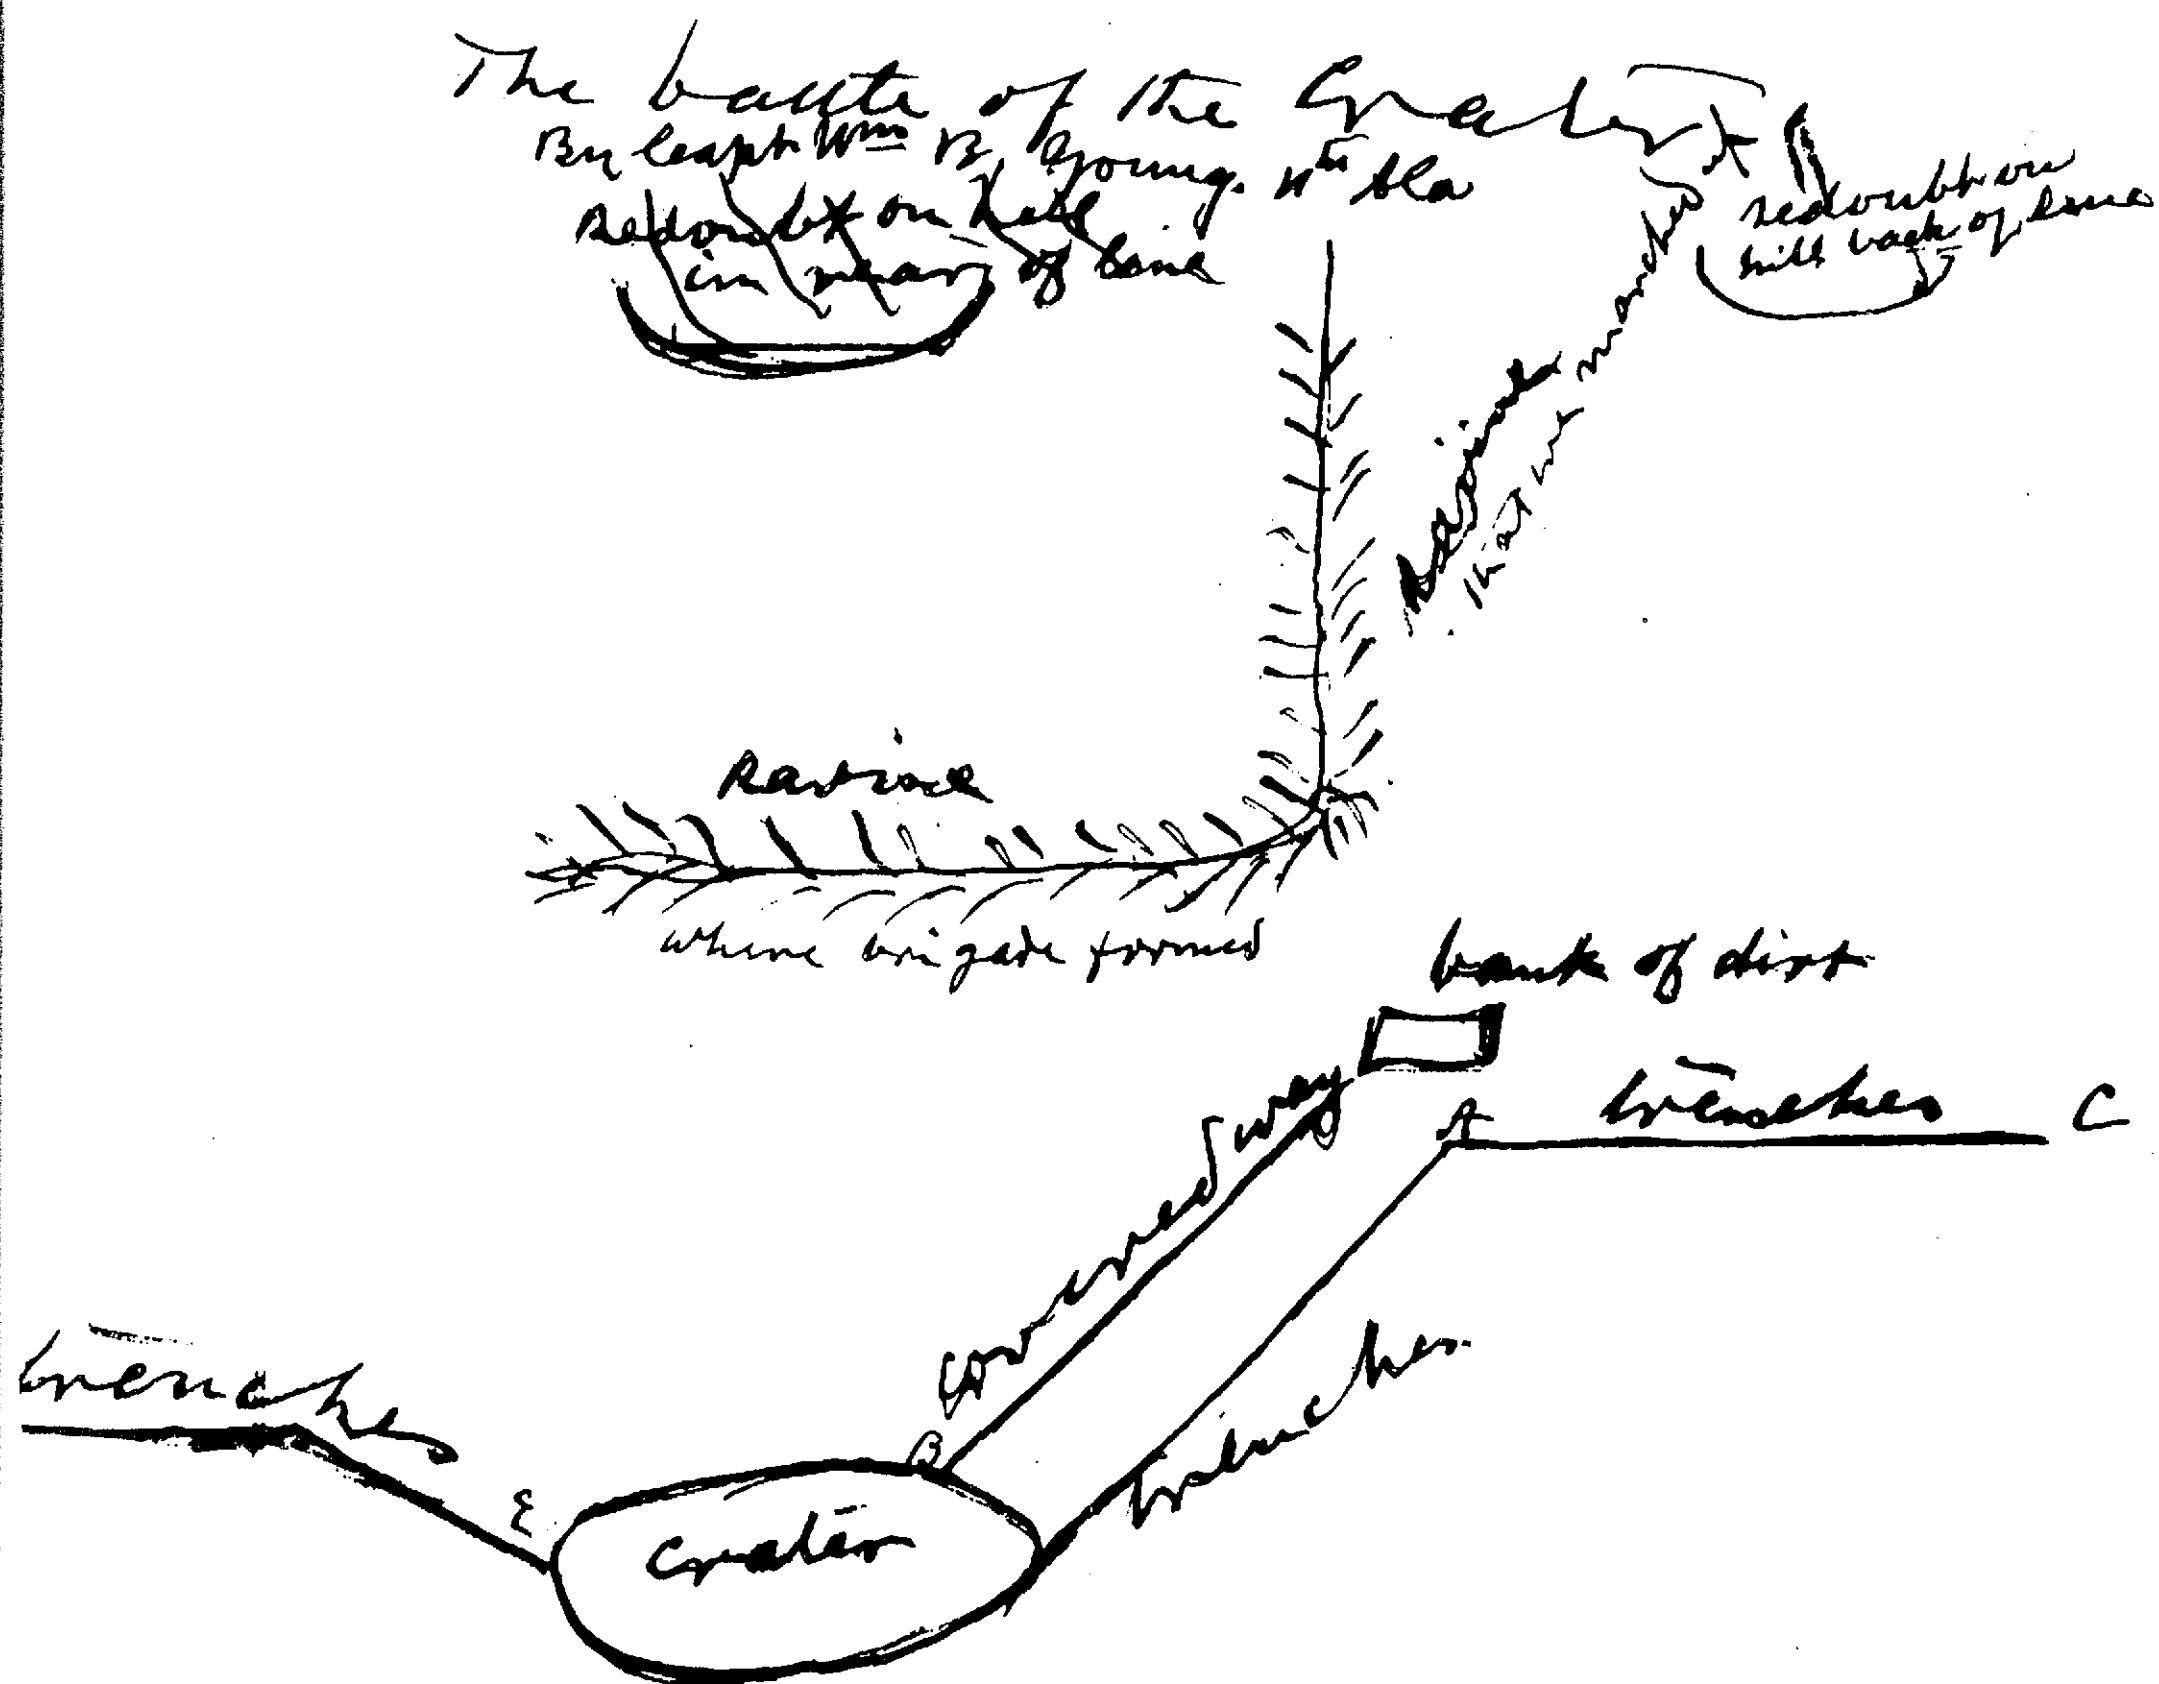 The battle of the Crater
By Capt Wm B. Young. 11th Ala
Redoubt on hill
in rear of line
redoubt on
hill back of line
Ravine
that we marched
Ravine
where brigade formed
bank of dirt
covered way
D
A
trenches
C
trenches
E
B
trenches
Crater